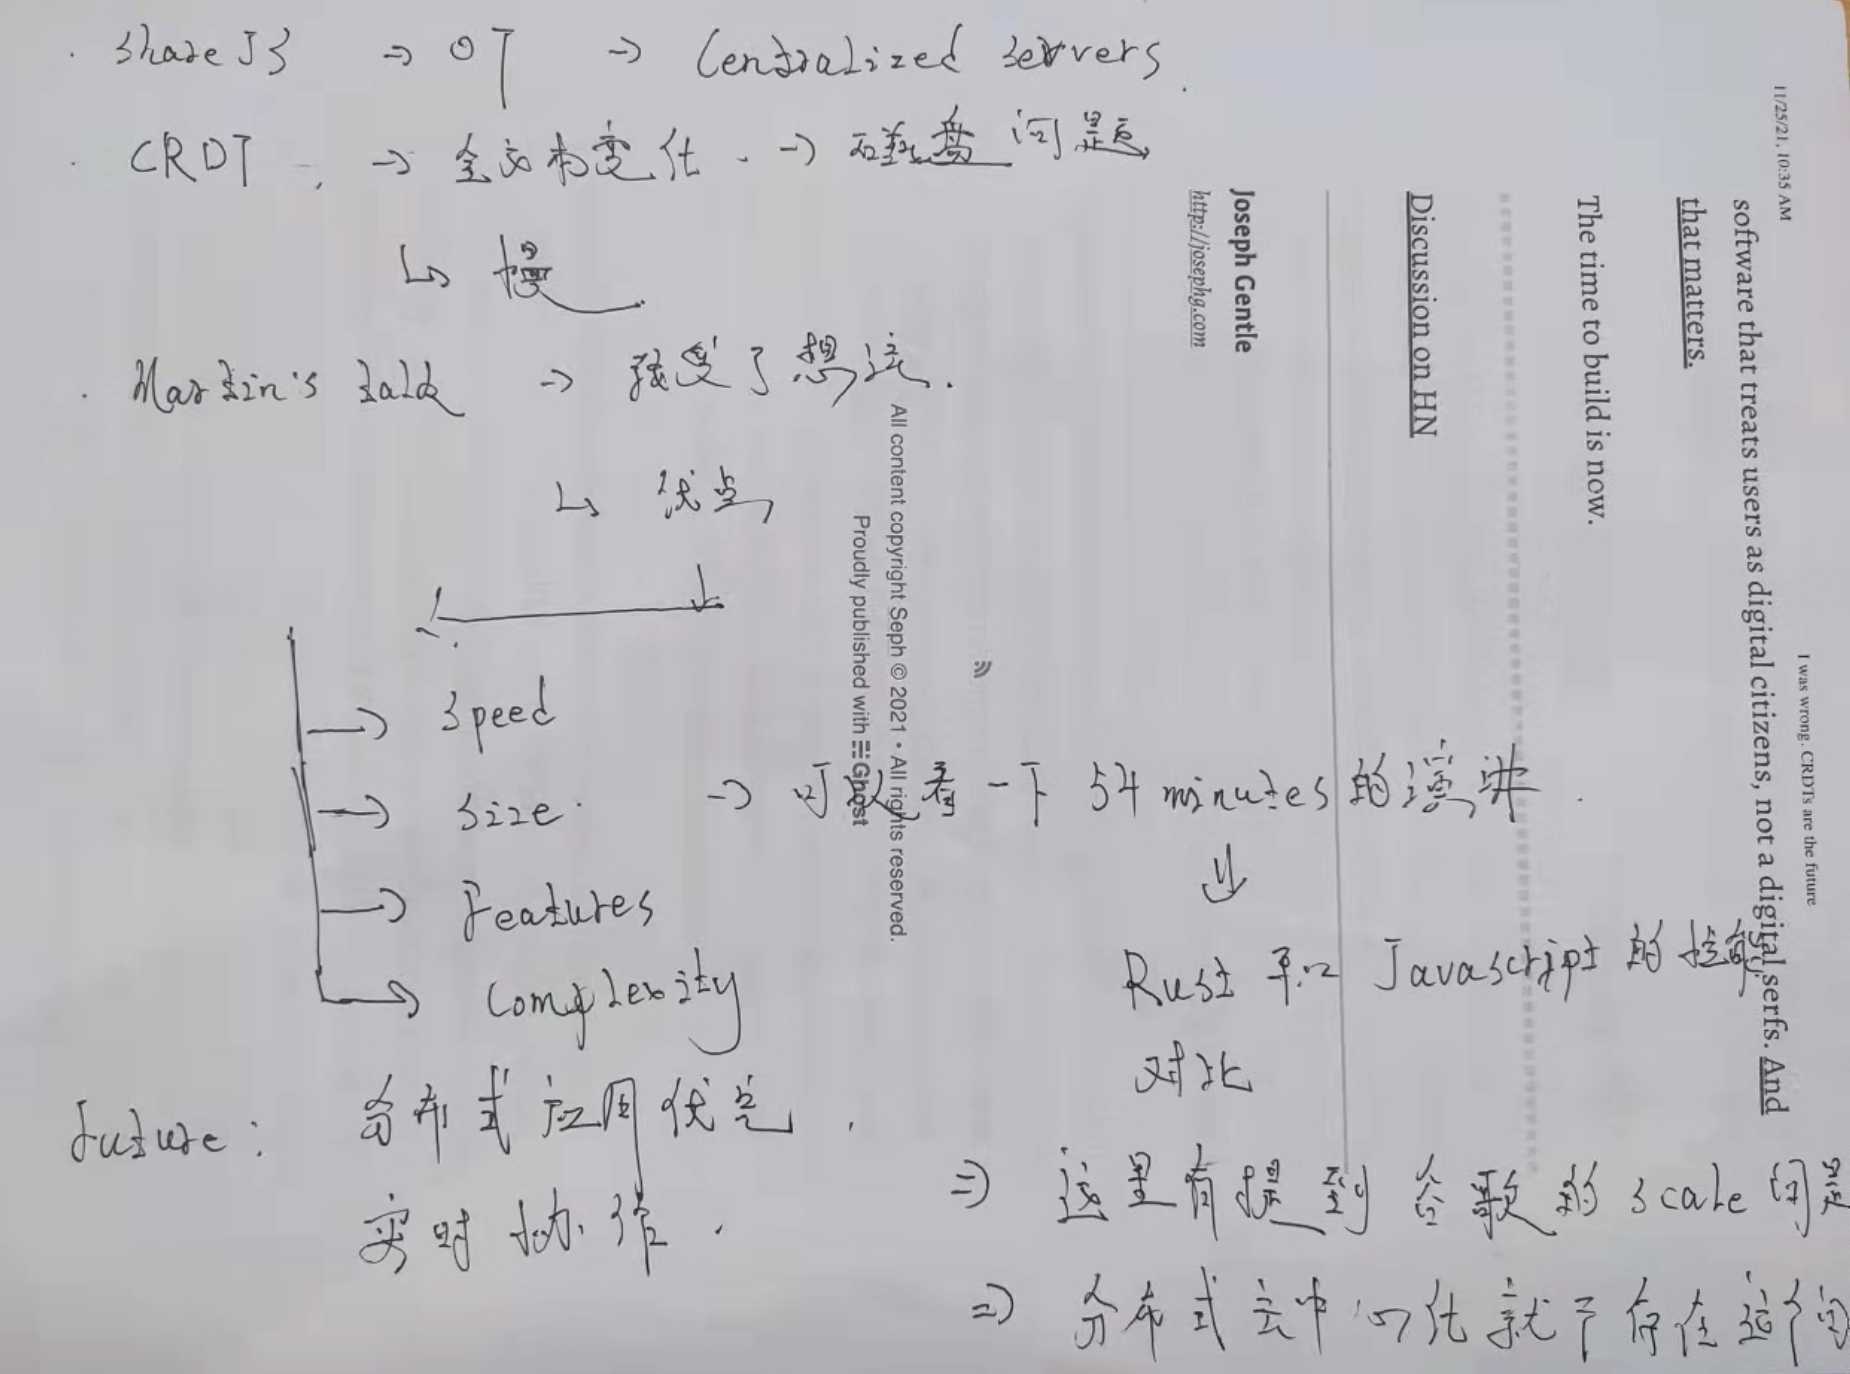 · ShareJS → OT → Centralized servers.
· CRDT. → 全文档变化. → 磁盘问题
↳ 慢
· Martin's talk → 改变了想法.
↳ 优点
→ Speed
→ Size.
→ Features
→ Complexity
→ 可以看一下 54 minutes 的演讲.
↓
Rust 和 Javascript 的性能
对比
future: 分布式应用优先.
实时协作.
⇒ 这里有提到谷歌的 scale 问题
⇒ 分布式去中心化就不存在这个问
11/25/21, 10:35 AM
I was wrong. CRDTs are the future
software that treats users as digital citizens, not a digital serfs. And
that matters.
The time to build is now.
Discussion on HN
Joseph Gentle
http://josephg.com
All content copyright Seph © 2021 • All rights reserved.
Proudly published with Ghost